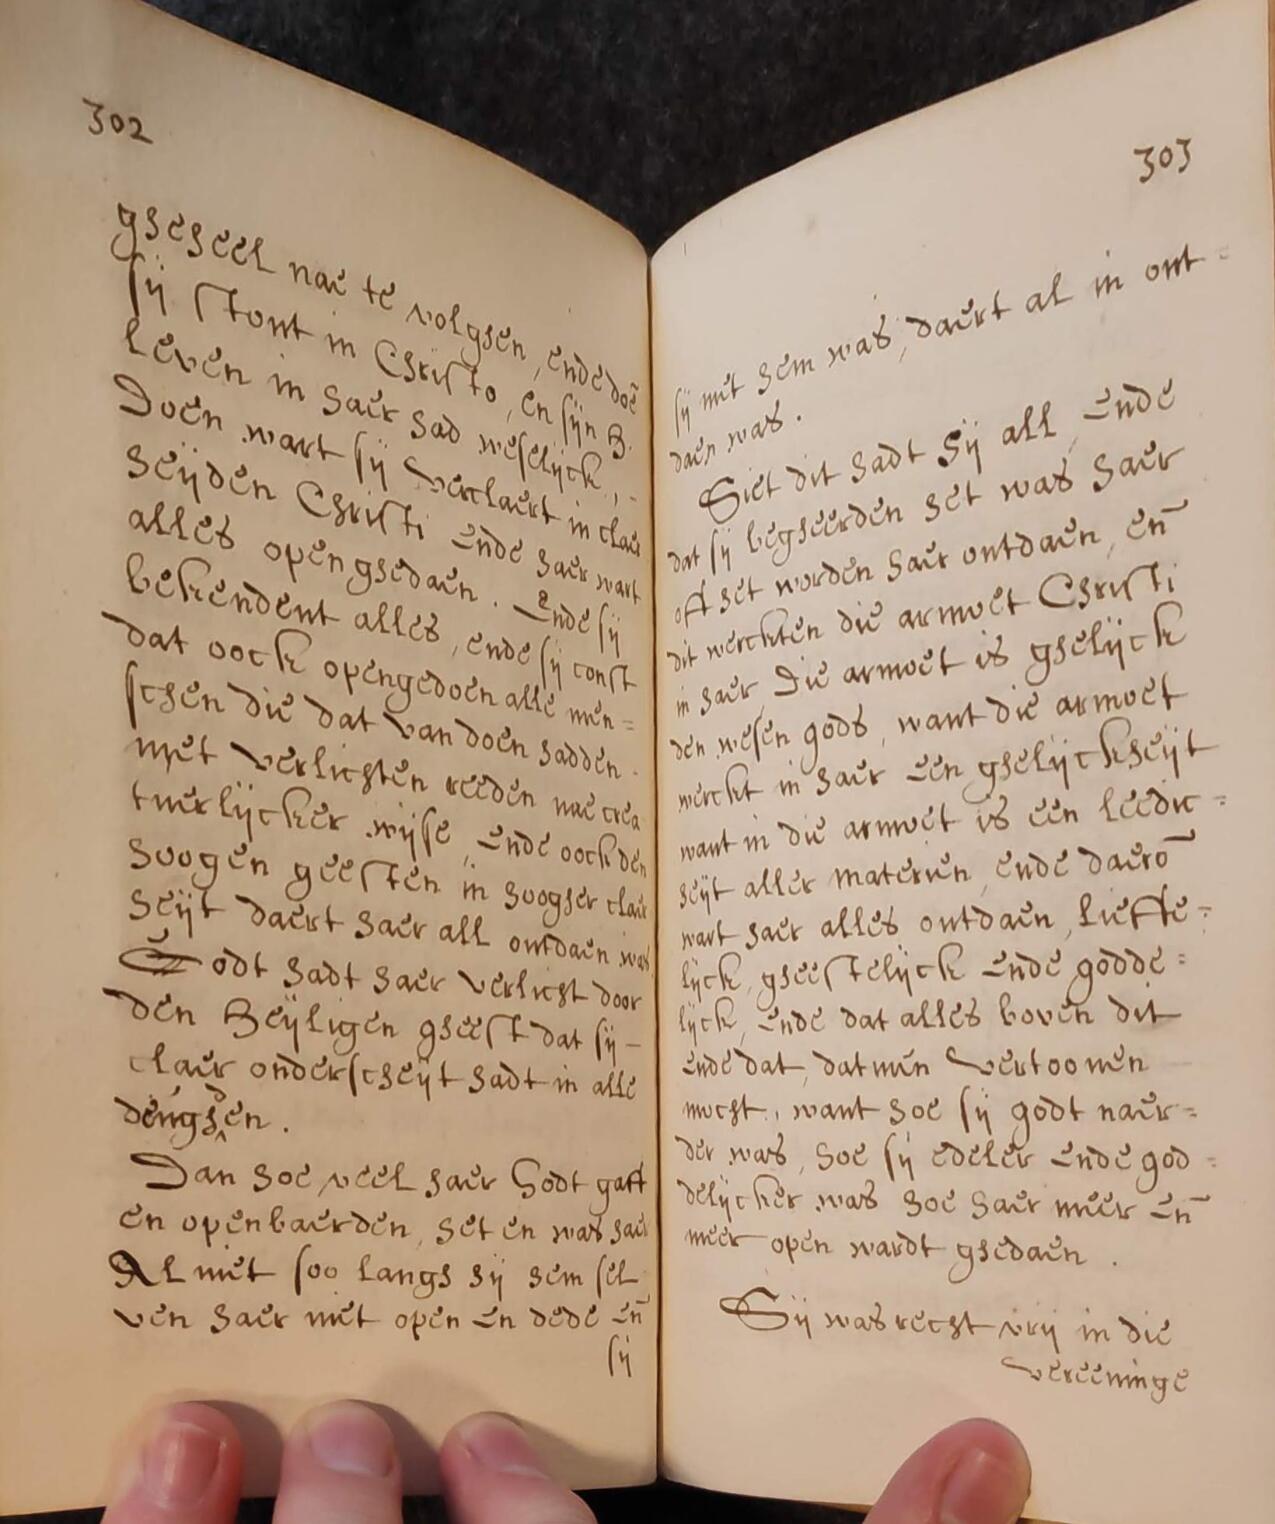 302
gheheel nae te volghen, ende doē
sij stont in Christo, en sijn H.
leven in haer had weselijck, -
Doen wart sij verclaert in claer
heijden Christi ende haer wart
alles openghedaen. Ende sij
bekendent alles, ende sij const
dat oock opengedoen alle men=
schen die dat van doen hadden.
met verlichten reeden nae crea
tuerlijcker wijse, ende oock den
hoogen geesten in hoogher claer
heijt daert haer all ontdaen was
Godt hadt haer verlicht door
den Heijligen gheest dat sij -
claer onderscheijt hadt in alle
denghden.
Dan hoe veel haer Godt gaff
en openbaerden, het en was haer
Al niet soo langh hij hem sel
ven haer niet open en dede eñ
sij
303
sij met hem was, daert al in ont=
daen was.
Siet dit hadt sij all, ende
dat sij begheerden het was haer
off het worden haer ontdaen, eñ
dit werckten die armoet Christi
in haer, Die armoet is ghelijck
den wesen gods, want die armoet
werckt in haer een ghelijckheijt
want in die armoet is een leedic=
heijt aller materien, ende daerō
wart haer alles ontdaen, lieffe=
lijck, gheestelijck ende godde=
lijck, ende dat alles boven dit
ende dat, datmen vertoonen
mocht, want hoe sij godt naer=
der was, hoe sij edeler ende god=
delijcker was hoe haer meer eñ
meer open wardt ghedaen.
Sij was recht vrij in die
vereeninge